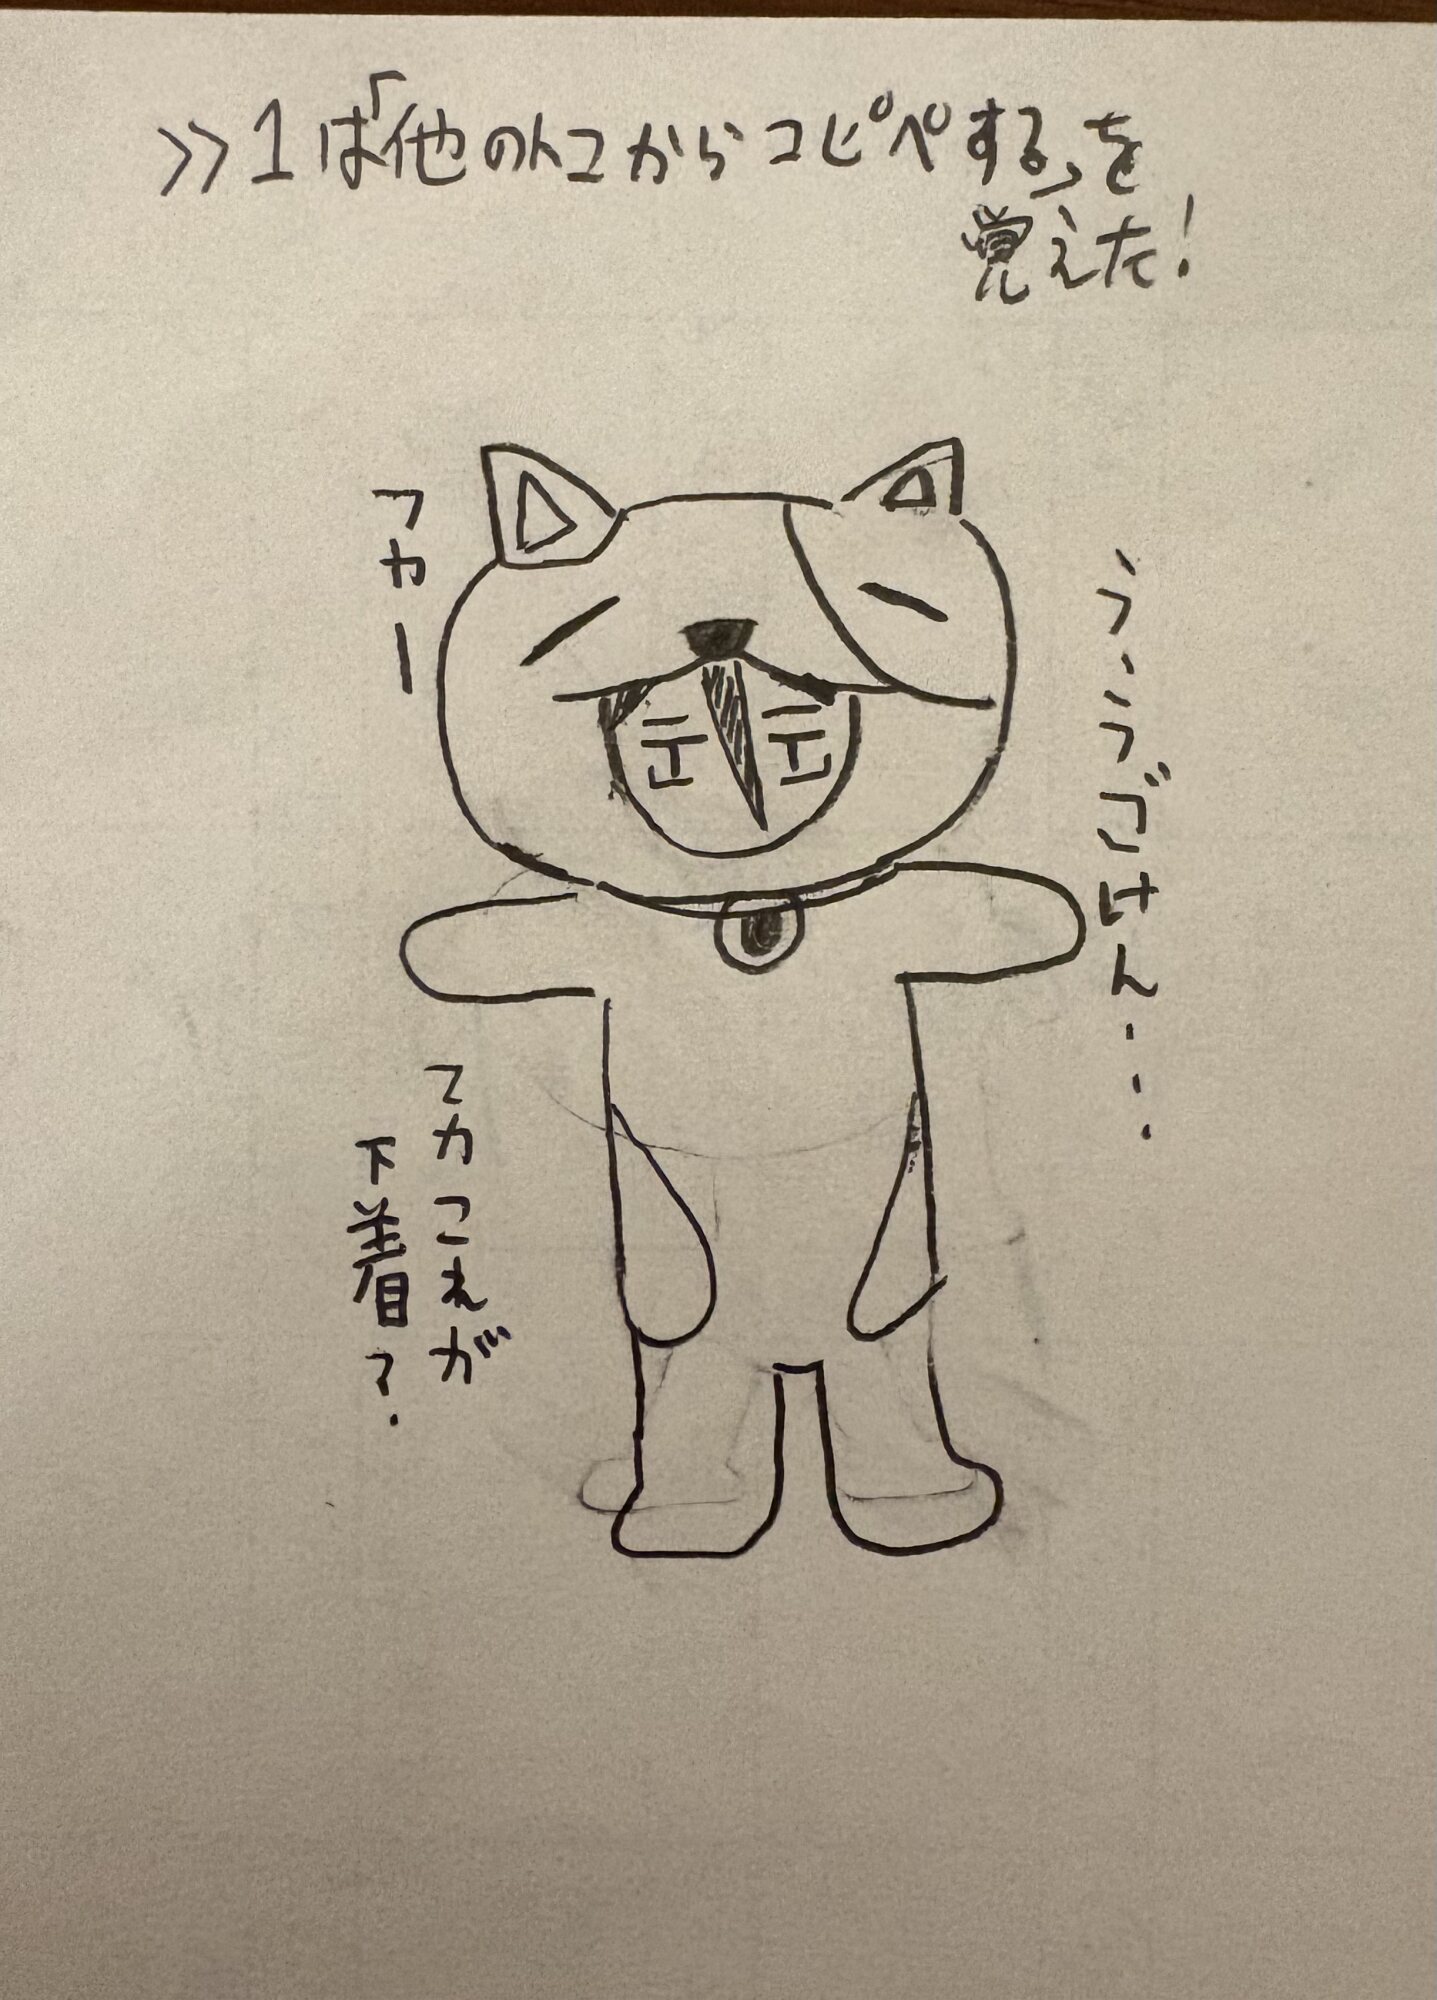 >>1は「他のトコからコピペする」を
覚えた!
う、うごけん・・・
フカー
てかこれが
下着?